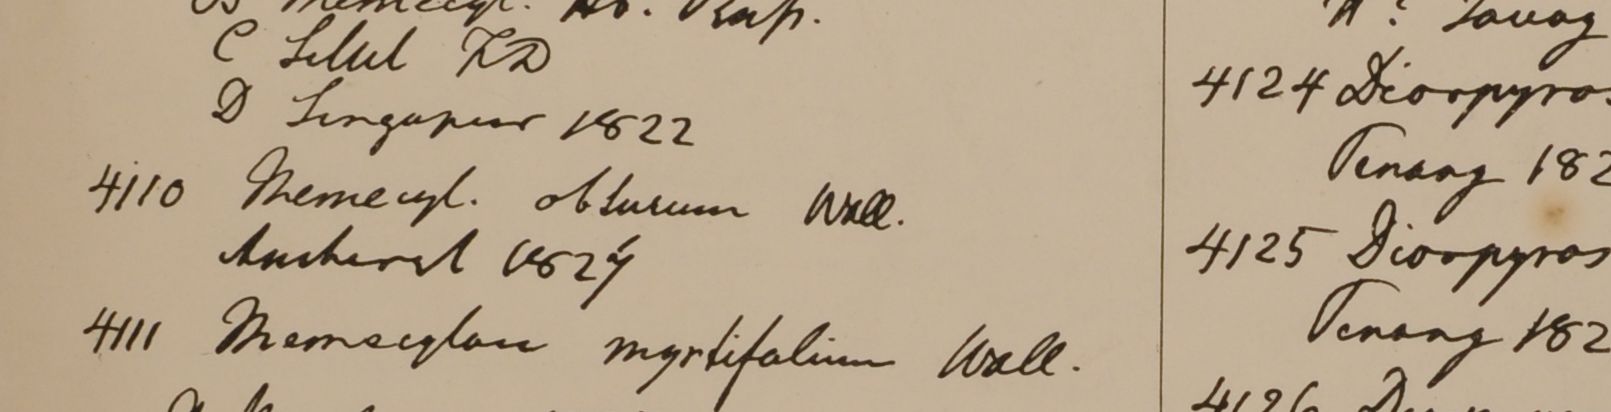 B Memecyl. Hb. Roxb.
C Silhet FD
D Singapur 1822
4110 Memecyl. obscurum Wall.
Amherst 1827
4111 Memecylon myrtifolium Wall.
4124 Diospyros
Penang 182
4125 Diospyros
Penang 182
4126